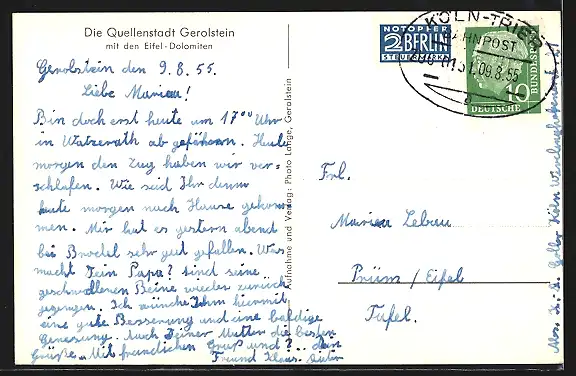 Die Quellenstadt Gerolstein
mit den Eifel-Dolomiten
Gerolstein den 9.8.55.
Liebe Marica!
Bin doch erst heute um 17⁰⁰ Uhr
in Watzerath ab gefahren. Heute
morgen den Zug haben wir ver-
schlafen. Wie seid Ihr denn
heute morgen nach Hause gekom
men. Mir hat es gestern abend
bei Brodel sehr gut gefallen. Was
macht Dein Papa? sind seine
geschwollenen Beine wieder zurück
gezogen. Ich wünche Ihm hiermit
eine gute Besserung und eine baldige
Genesung. Auch Deiner Mutter die besten
Grüße. Mit freundlichen Gruß und ?.. dein
Freund Klaus-
Aufnahme und Verlag: Photo Lange, Gerolstein
NOTOPFER
2 BERLIN
STEUERMARKE
KÖLN-TRIER
BAHNPOST
09.8.55
10
DEUTSCHE
BUNDESPOST
Frl.
Marica Lebau
Prüm/Eifel
Tafel.
Abs. K. Köln